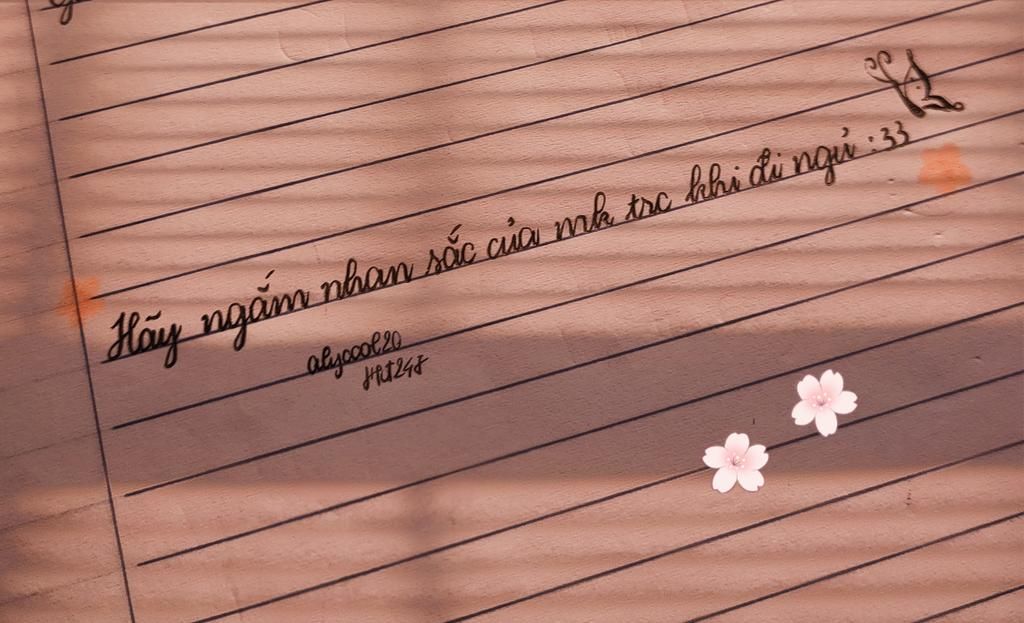 Hãy ngắm nhan sắc của mk trc khi đi ngủ :33
alycool20